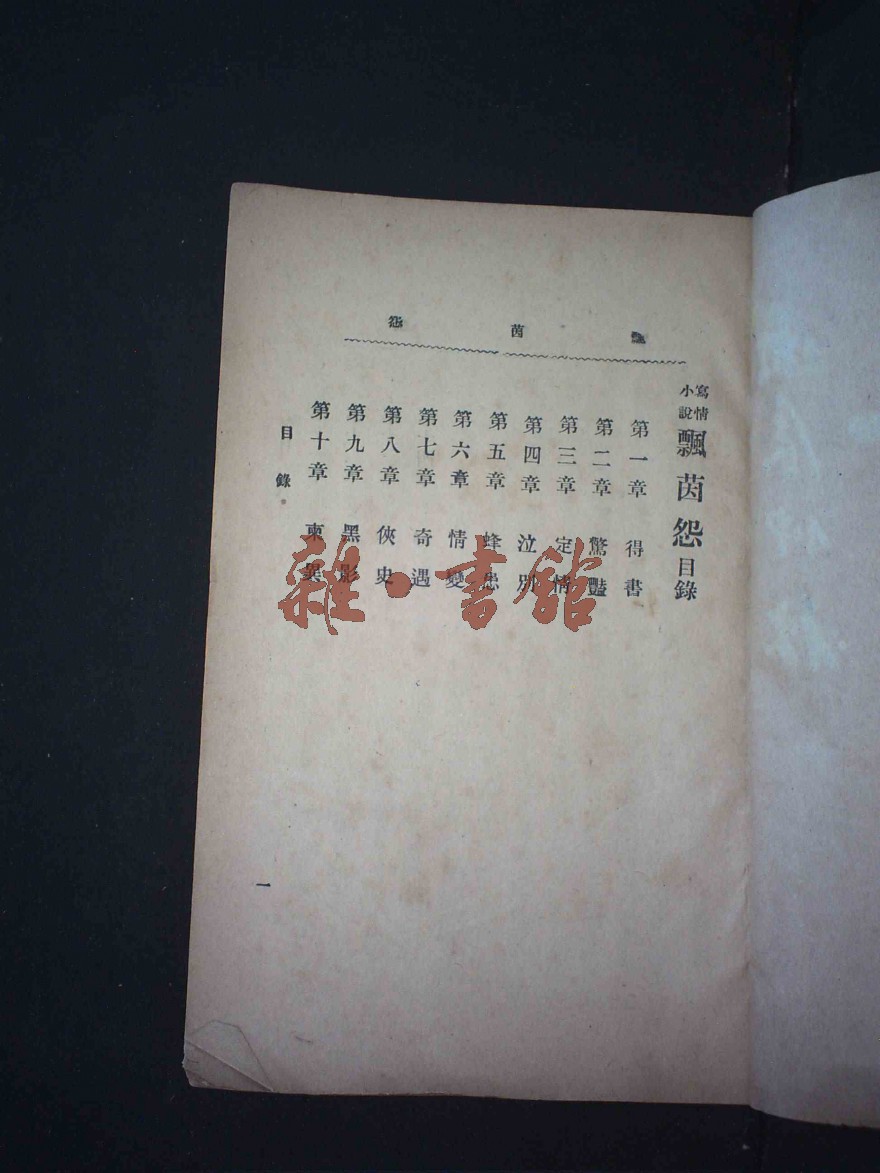 飄茵怨
寫情小說 飄茵怨目錄
第一章 得書
第二章 驚豔
第三章 定情
第四章 泣別
第五章 蜂患
第六章 情變
第七章 奇遇
第八章 俠史
第九章 黑影
第十章 柬
目錄
一
雜·書館